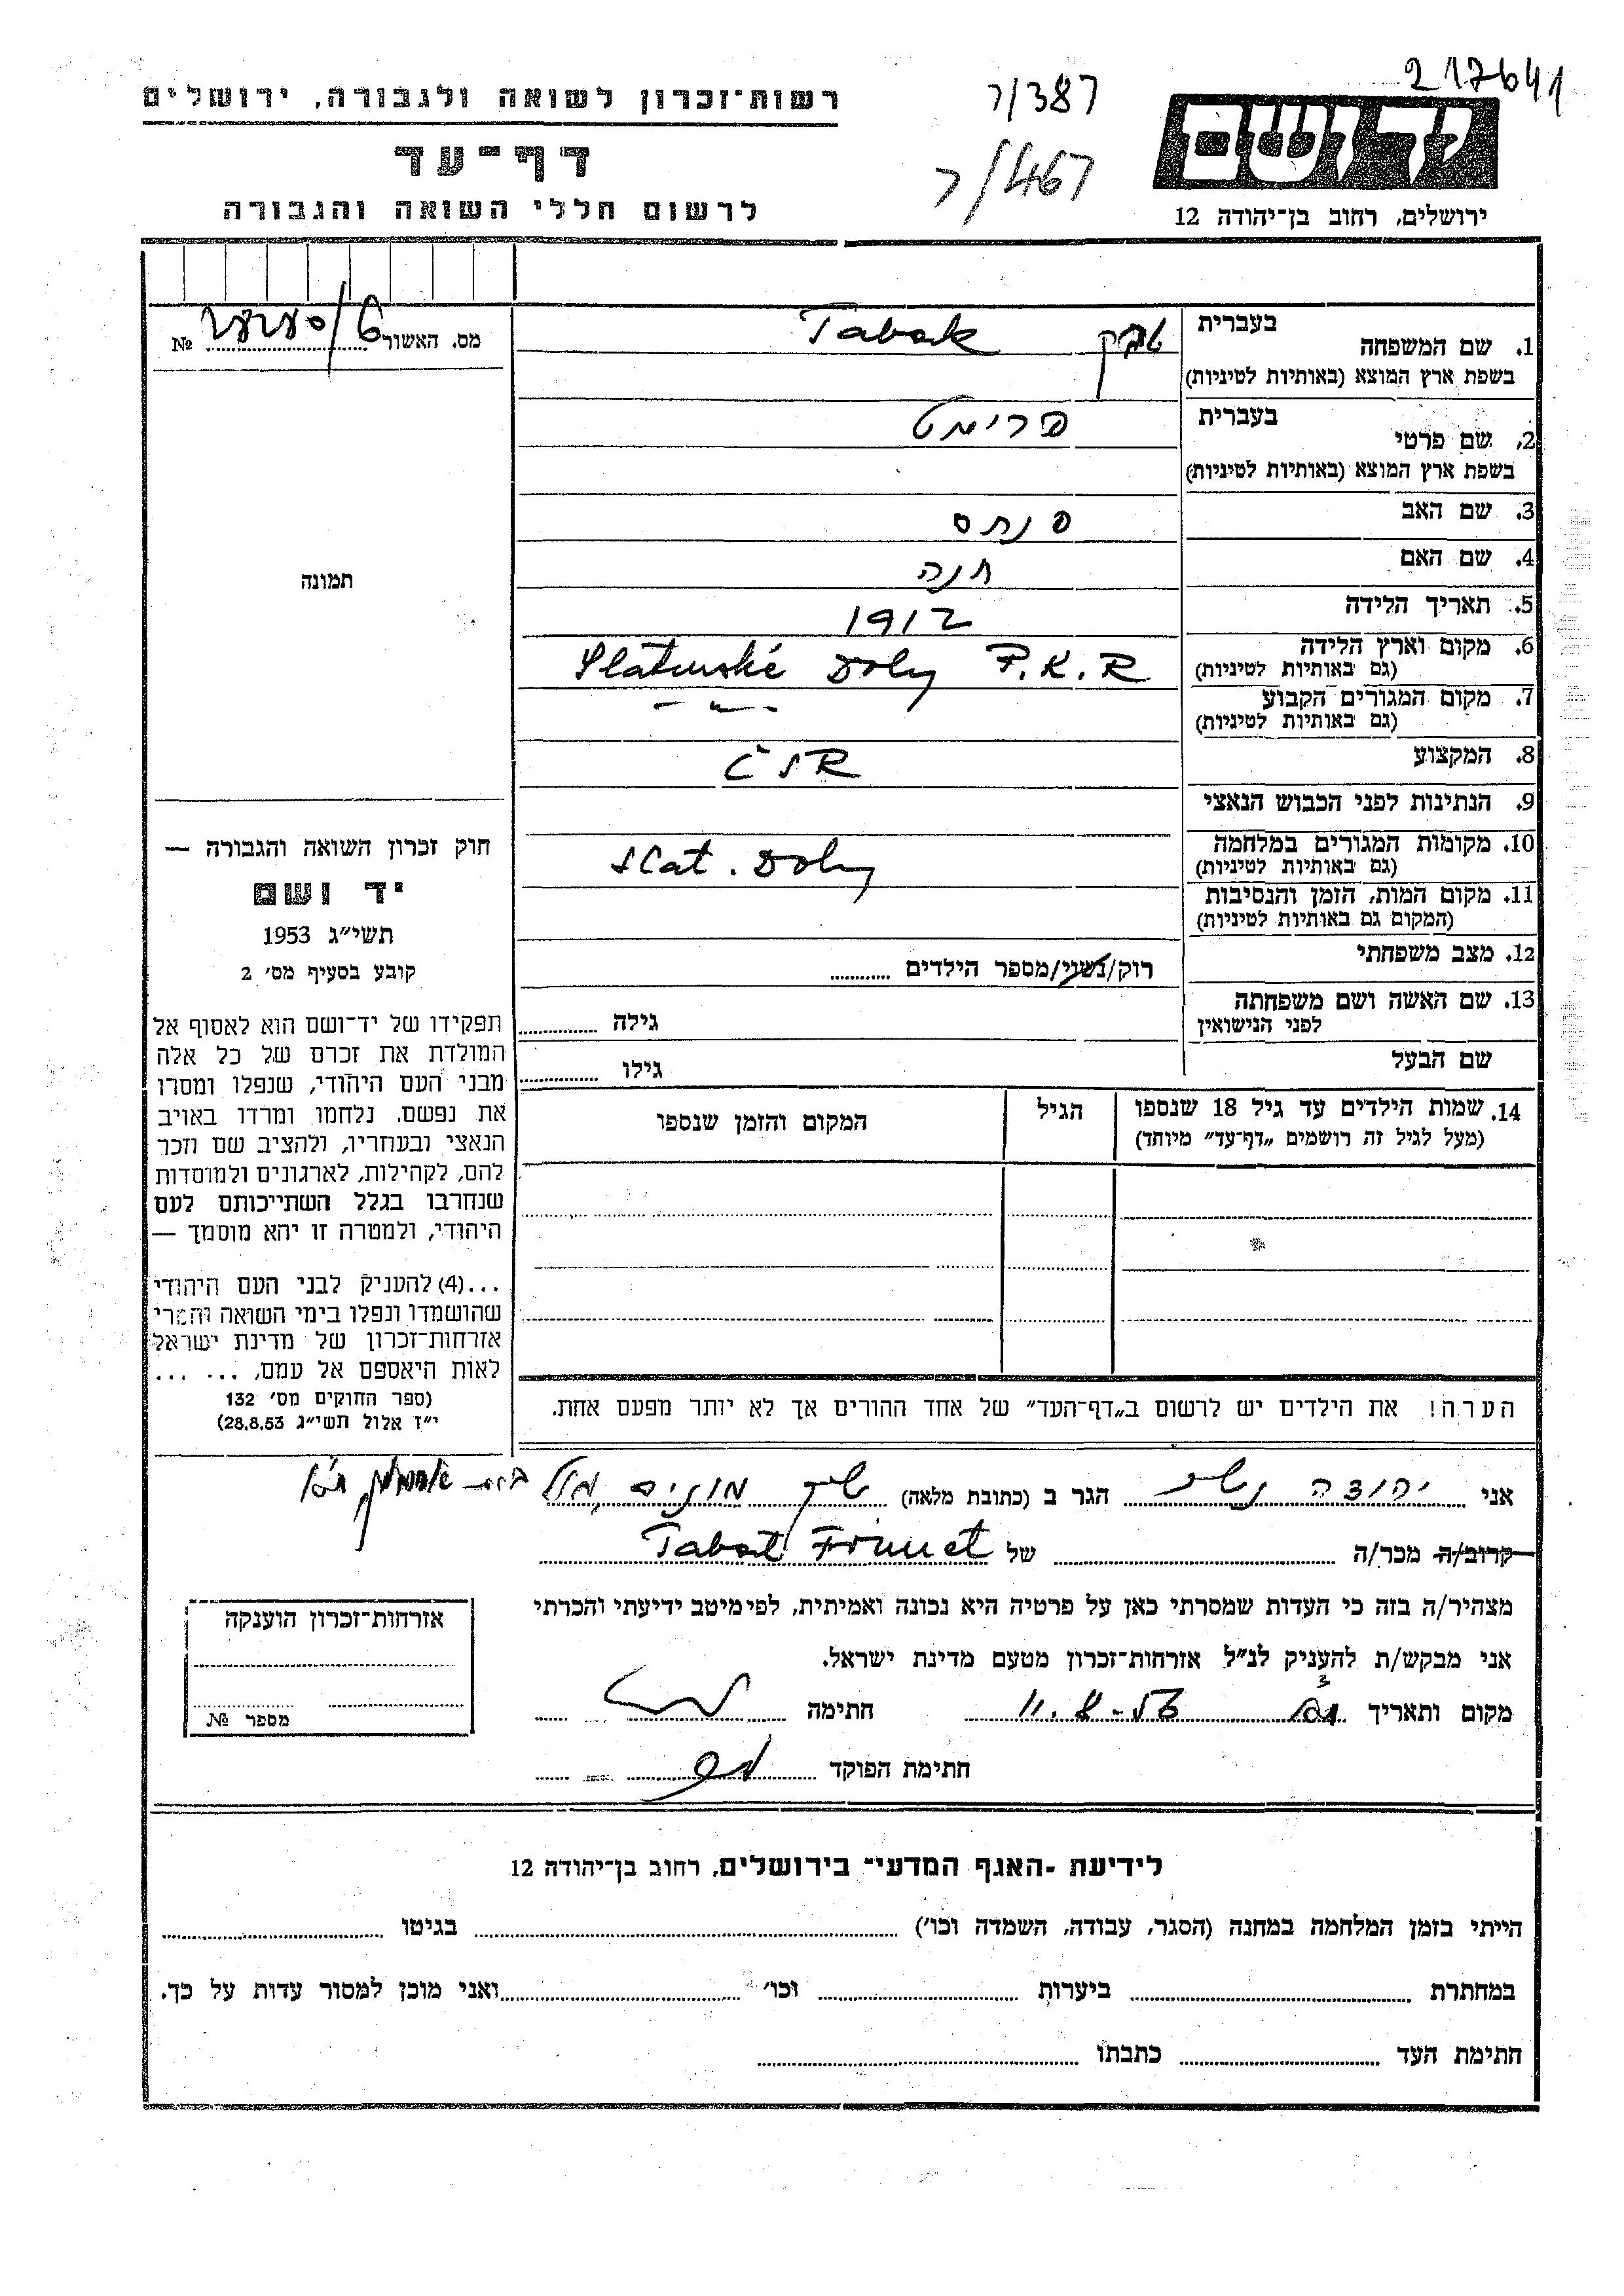 217641
רשות־זכרון לשואה ולגבורה, ירושלים
ר/387
יד ושם
דף־עד
ר/467
לרשום חללי השואה והגבורה
ירושלים, רחוב בן־יהודה 12
בעברית
1. שם המשפחה
בשפת ארץ המוצא (באותיות לטיניות)
טבק Tabak
מס. האשור № 
בעברית
2. שם פרטי
בשפת ארץ המוצא (באותיות לטיניות)
פרימט
3. שם האב
פנחס
4. שם האם
חנה
תמונה
5. תאריך הלידה
1912
6. מקום וארץ הלידה
(גם באותיות לטיניות)
Slatinské Doly P.K.R
7. מקום המגורים הקבוע
(גם באותיות לטיניות)
— " —
8. המקצוע
ČSR
9. הנתינות לפני הכבוש הנאצי
10. מקומות המגורים במלחמה
(גם באותיות לטיניות)
Slat. Doly
11. מקום המות, הזמן והנסיבות
(המקום גם באותיות לטיניות)
12. מצב משפחתי
רוק/נשוי/מספר הילדים
13. שם האשה ושם משפחתה
לפני הנישואין
גילה
שם הבעל
גילו
14. שמות הילדים עד גיל 18 שנספו
(מעל לגיל זה רושמים „דף־עד" מיוחד)
הגיל
המקום והזמן שנספו
חוק זכרון השואה והגבורה —
יד ושם
תשי"ג 1953
קובע בסעיף מס' 2
תפקידו של יד־ושם הוא לאסוף אל
המולדת את זכרם של כל אלה
מבני העם היהודי, שנפלו ומסרו
את נפשם. נלחמו ומרדו באויב
הנאצי ובעוזריו, ולהציב שם וזכר
להם, לקהילות, לארגונים ולמוסדות
שנחרבו בגלל השתייכותם לעם
היהודי, ולמטרה זו יהא מוסמך —
...(4) להעניק לבני העם היהודי
שהושמדו ונפלו בימי השואה והמרי
אזרחות־זכרון של מדינת ישראל
לאות היאספם אל עמם, ... ...
(ספר החוקים מס' 132
י"ז אלול תשי"ג 28.8.53)
הערה! את הילדים יש לרשום ב„דף־העד" של אחד ההורים אך לא יותר מפעם אחת.
אני יהודה הגר ב (כתובת מלאה) שיך מוניס
קרוב/ה מכר/ה של Tabak Frimet
מצהיר/ה בזה כי העדות שמסרתי כאן על פרטיה היא נכונה ואמיתית, לפי מיטב ידיעתי והכרתי
אני מבקש/ת להעניק לנ"ל אזרחות־זכרון מטעם מדינת ישראל.
מקום ותאריך 11.8. חתימה
חתימת הפוקד
אזרחות־זכרון הוענקה
מספר №
לידיעת ־האגף המדעי־ בירושלים, רחוב בן־יהודה 12
הייתי בזמן המלחמה במחנה (הסגר, עבודה, השמדה וכו') בגיטו
במחתרת ביערות וכו' ואני מוכן למסור עדות על כך.
חתימת העד כתבתו